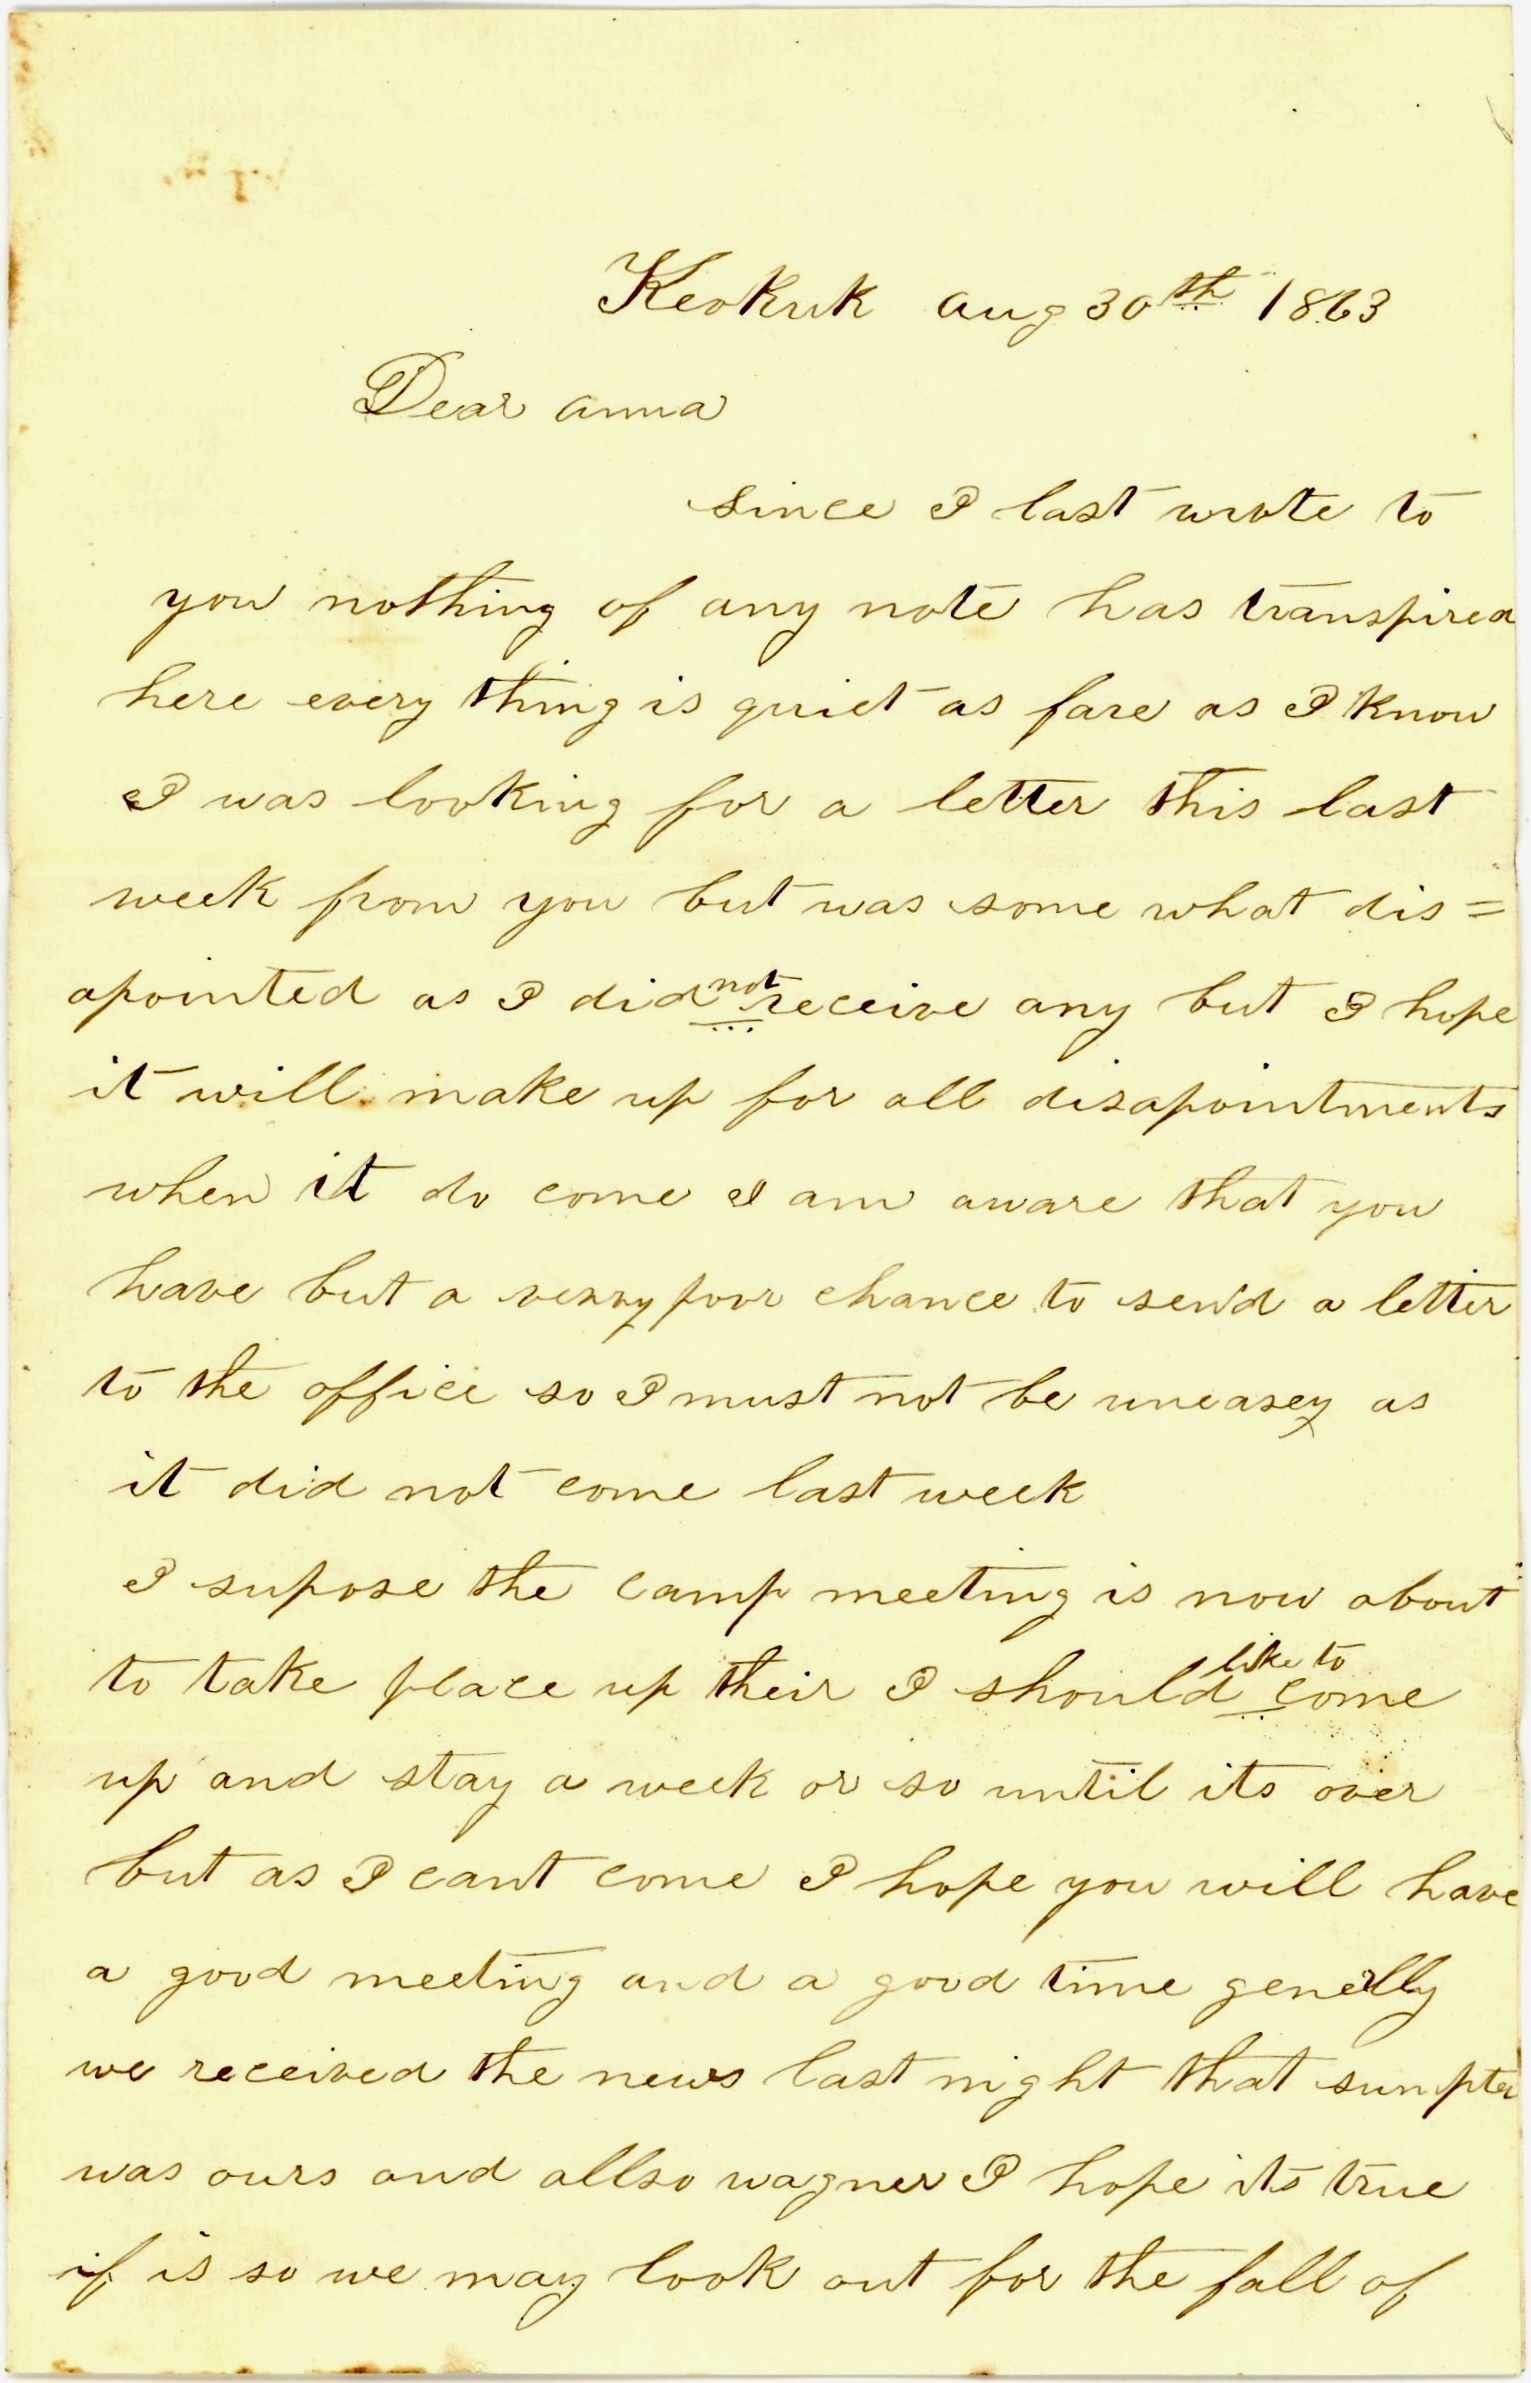 Keokuk aug 30th 1863
Dear anna
since I last wrote to
you nothing of any note has transpired
here every thing is quiet as fare as I know
I was looking for a letter this last
week from you but was some what dis=
apointed as I did not receive any but I hope
it will make up for all disapointments
when it do come I am aware that you
have but a verry poor chance to send a letter
to the office so I must not be uneasey as
it did not come last week
I supose the camp meeting is now about
to take place up their I should like to come
up and stay a week or so until its over
but as I cant come I hope you will have
a good meeting and a good time generlly
we received the news last night that sumpter
was ours and allso wagner I hope its true
if is so we may look out for the fall of